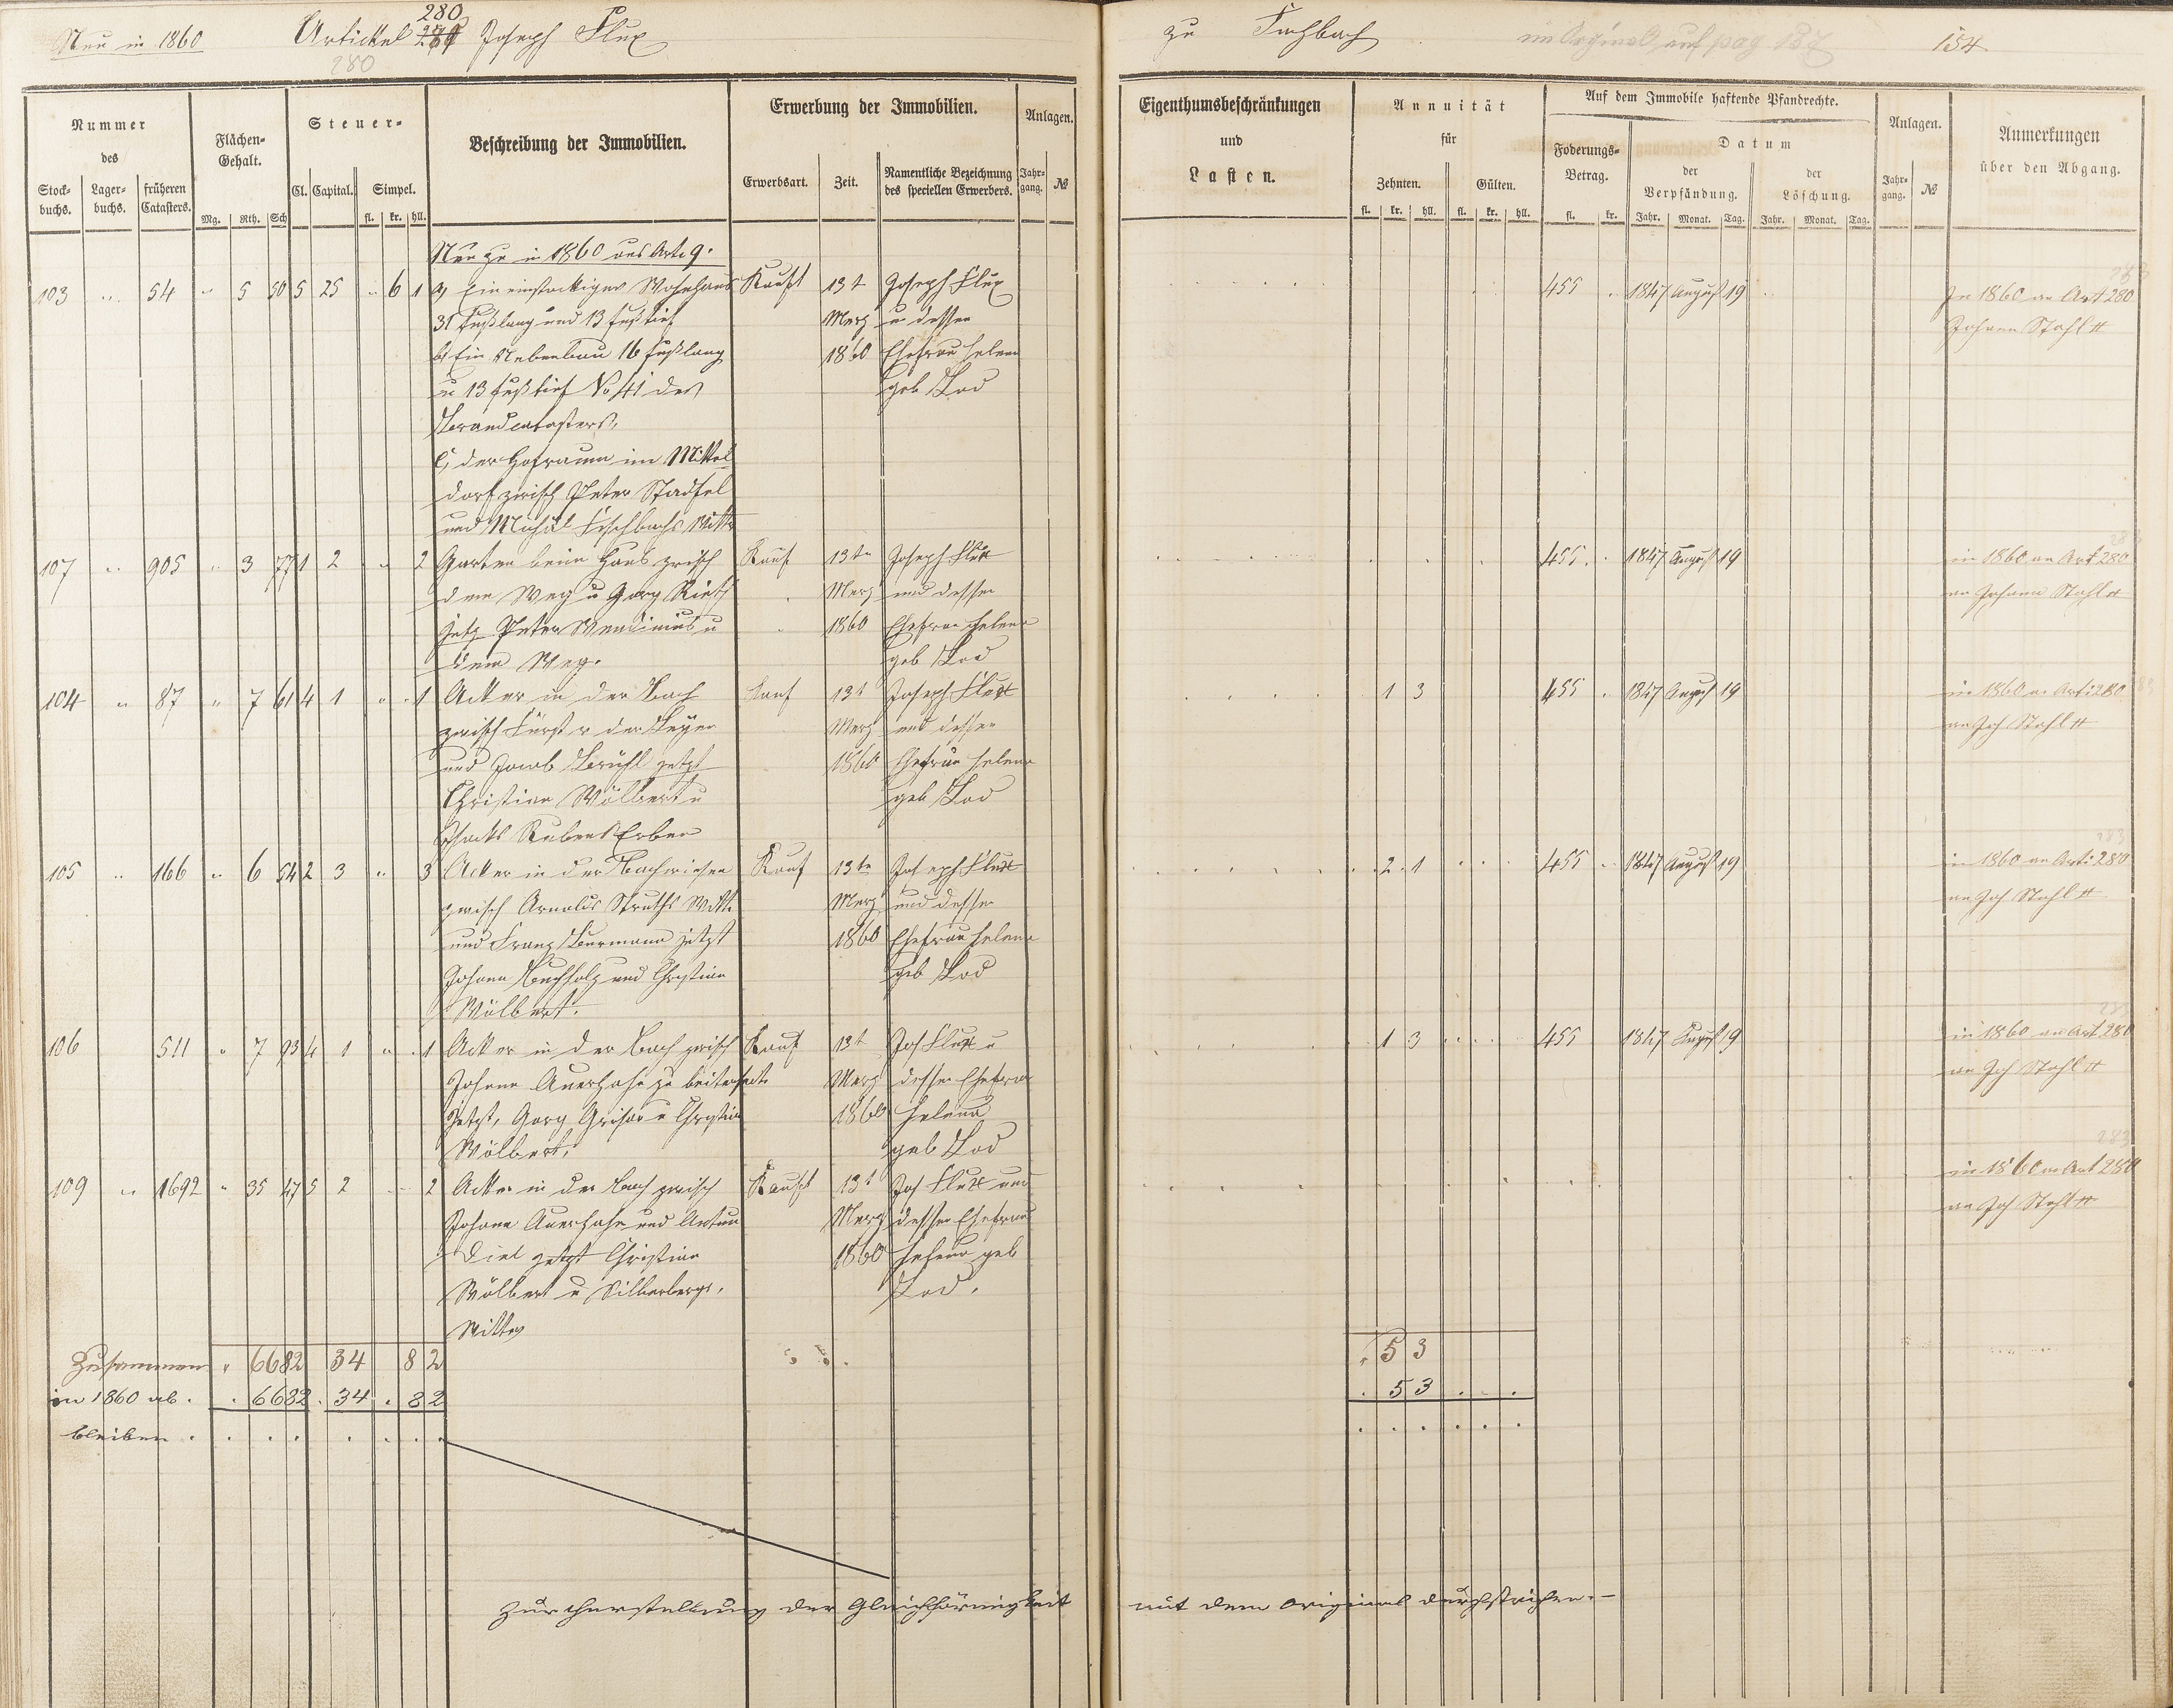 Neu in 1860
Artickel 280 Joseph Flux
280
zu Fachbach
im Orginal auf pag 137
154
Nummer des
Stockbuchs. Lagerbuchs. früheren Catasters.
Flächen-Gehalt.
Mg. Rth. Sch
Steuer-
Cl. Capital. Simpel.
fl. kr. hll.
Beschreibung der Immobilien.
Erwerbung der Immobilien.
Erwerbsart. Zeit. Namentliche Bezeichnung des speciellen Erwerbers.
Anlagen.
Jahrgang. №
Eigenthumsbeschränkungen
und
Lasten.
Annuität
für
Zehnten. Gülten.
fl. kr. hll. fl. kr. hll.
Auf dem Immobile haftende Pfandrechte.
Foderungs-Betrag.
fl. kr.
Datum
der Verpfändung. der Löschung.
Jahr. Monat. Tag. Jahr. Monat. Tag.
Anlagen.
Jahrgang. №
Anmerkungen
über den Abgang.
Neu zu in 1860 aus Art. 9.
103 " 54 " 5 50 5 25 " 6 1 a, Ein einstockiges Wohnhaus Kauft 13t Joseph Flux 455 " 1847 August 19 In 1860 an Art 280
31 Fuß lang und 13 Fuß tief Merz u dessen Johann Stahl
b, Ein Nebenbau 16 Fuß lang 1860 Ehefrau Helena
u 13 Fuß tief No 41 des geb Lod
Brandcatasters,
c, der Hofraum im Mittel
dorf zwisch Peter Stadfel
und Michäl Fischbachs Witte
107 " 905 " 3 77 1 2 " 2 Garten beim Haus zwisch Kauf 13tn Joseph Flux 455 " 1847 August 19 in 1860 an Art 280
dem Weg u Georg Merz und dessen an Johann Stahl
jetz Peter u 1860 Ehefrau Helena
dem Weg. geb Lod
104 " 87 " 7 61 4 1 " " 1 Acker in der Bach Kauf 13t Joseph Flux 1 3 455 " 1847 August 19 in 1860 an Art: 280
zwisch Fürst v der Leyen Merz und dessen an Joh Stahl
und Jacob Brühl jetzt 1860 Ehefrau Helena
Christian Wölbert u geb Lod
Rubens Erben
105 " 166 " 6 54 2 3 " 3 Acker in der Bachwiesen Kauf 13tn Joseph Flux 2 1 455 " 1847 August 19 in 1860 an Art: 280
zwisch Arnolds Struths Witte Merz und dessen an Joh Stahl
und Franz jetzt 1860 Ehefrau Helena
Johann Buchholz und Christian geb Lod
Wölbert.
106 511 " 7 93 4 1 " 1 Acker in der Bach zwisch Kauf 13t Jos Flux u 1 3 455 1847 August 19 in 1860 an Art 280
Johann Auerhahn zu beiterseits Merz dessen Ehefrau an Joh Stahl
Jetzt, Georg u Christian 1860 Helena
Wölbert, geb Lod
109 " 1692 " 35 47 5 2 2 Acker in der Bach zwisch Kauft 13t Jos Flux und in 1860 an Art 280
Johann Auerhahn und Anton Merz dessen Ehefrau an Joh Stahl
Diel jetzt Christian 1860 Helena geb
Wölbert u Silberbergs, Lod.
Witte
Zusammen " 66 82 34 8 2 5 3
in 1860 ab. 66 82 34 8 2 5 3
bleiben
Zur Herstellung der Gleichförmigkeit mit dem Original durchstrichen. –